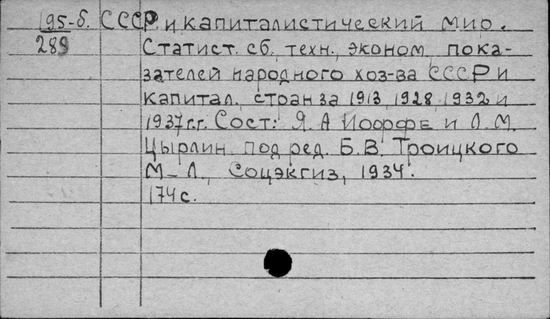 195-б. СССР и капиталистический мир.
289 Статист. сб., техн., эконом, пока-
зателей народного хоз-ва СССР и
капитал., стран за 1913, 1928, 1932 и
1937 г.г. Сост: Я. А Иоффе и Л. М.
Цырлин. под ред. Б. В. Троицкого
М-Л., Соцэкгиз, 1934.
174 с.